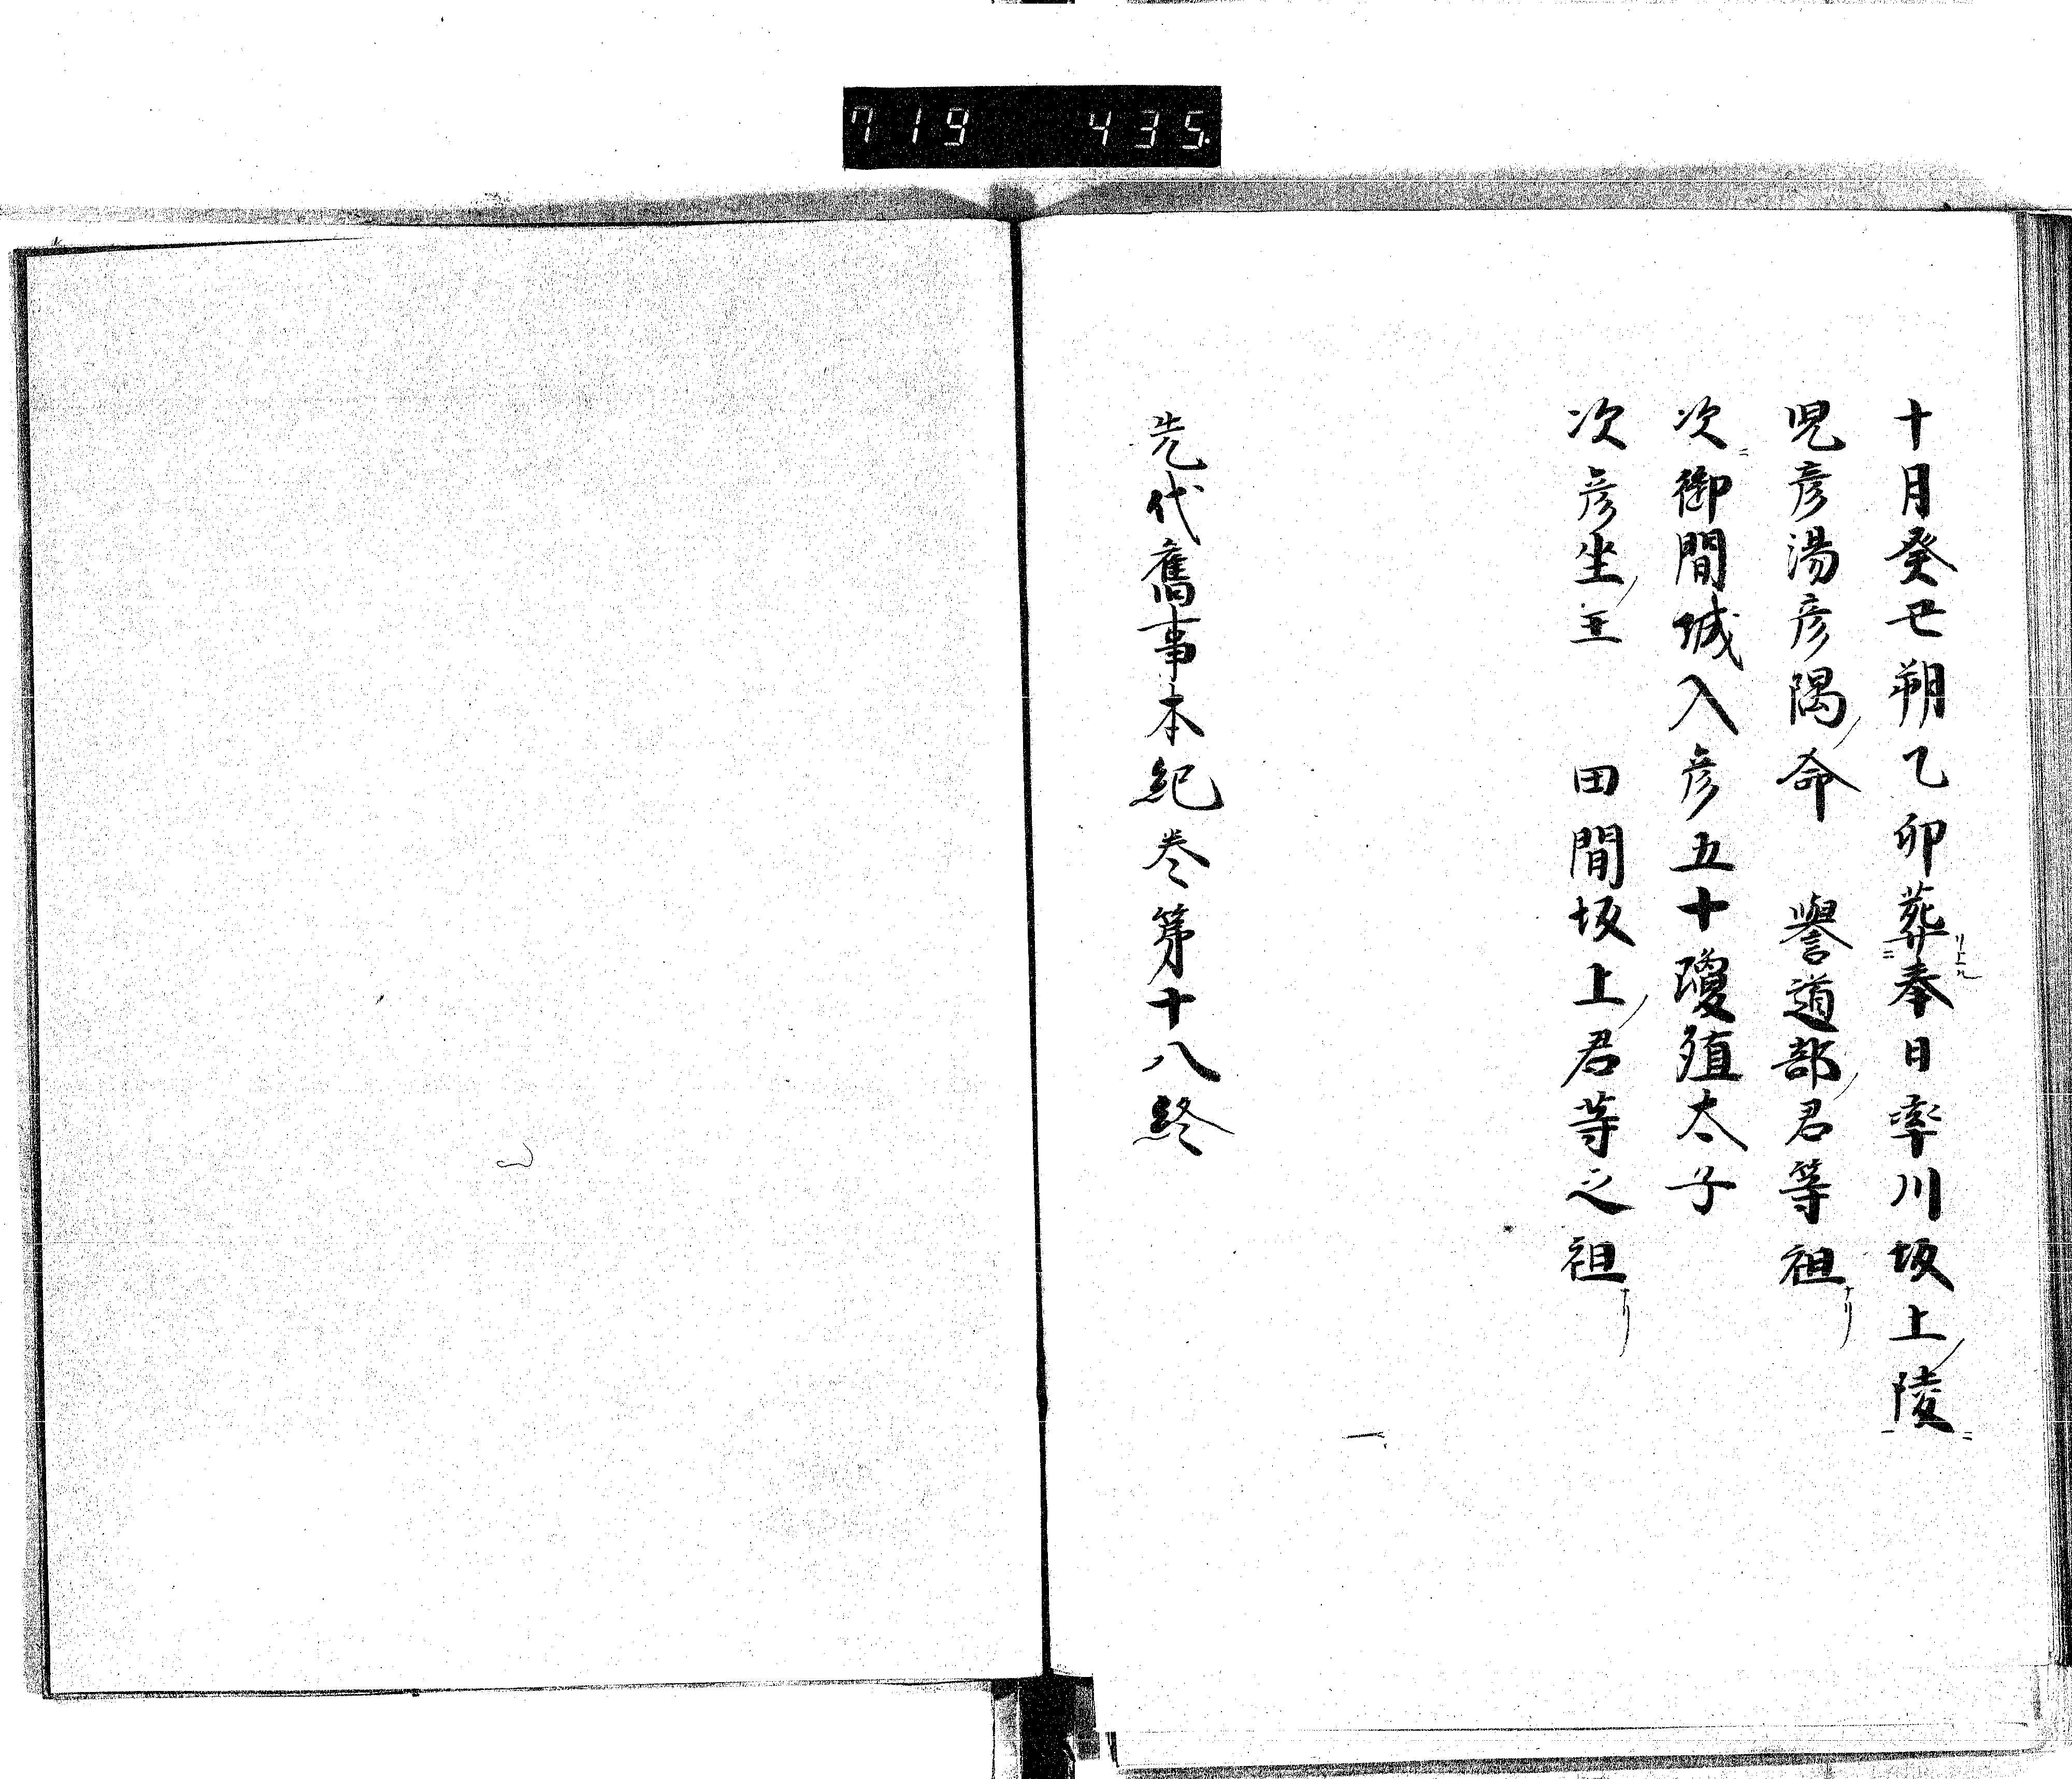 719 435.
十月癸丑朔乙卯葬奉日率川坂上ノ陵
児彦湯彦隅ノ命　譽道部ノ君等祖ナリ
次御間城入彦五十瓊殖太子
次彦坐ノ王　田間坂上ノ君等之祖ナリ
先代舊事本紀巻第十八終